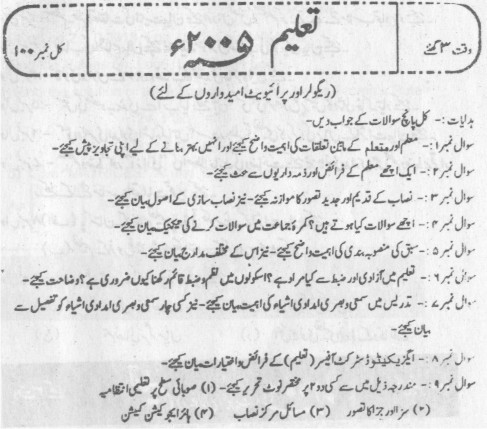 تعلیم
وقت ۳ گھنٹے
۲۰۰۵ء
کل نمبر ۱۰۰
(ریگولر اور پرائیویٹ امیدواروں کے لئے)
ہدایات:- کل پانچ سوالات کے جواب دیں-
سوال نمبر۱:- معلم اور متعلم کے مابین تعلقات کی اہمیت واضح کیجئے اور انہیں بہتر بنانے کے لیے اپنی تجاویز پیش کیجئے-
سوال نمبر۲:- ایک اچھے معلم کے فرائض اور ذمہ داریوں سے بحث کیجئے-
سوال نمبر۳:- نصاب کے قدیم اور جدید تصور کا موازنہ کیجئے- نیز نصاب سازی کے اصول بیان کیجئے-
سوال نمبر۴:- اچھے سوالات کیا ہوتے ہیں؟ کمرۂ جماعت میں سوالات کرنے کی تکنیک بیان کیجئے-
سوال نمبر۵:- سبق کی منصوبہ بندی کی اہمیت واضح کیجئے- نیز اس کے مختلف مدارج بیان کیجئے-
سوال نمبر۶:- تعلیم میں آزادی اور ضبط سے کیا مراد ہے؟ اسکولوں میں نظم و ضبط قائم رکھنا کیوں ضروری ہے؟ وضاحت کیجئے-
سوال نمبر۷:- تدریس میں سمعی و بصری امدادی اشیاء کی اہمیت بیان کیجئے- نیز کسی چار سمعی و بصری امدادی اشیاء کو تفصیل سے
بیان کیجئے-
سوال نمبر۸:- ایگزیکیٹو ڈسٹرکٹ آفیسر (تعلیم) کے فرائض و اختیارات بیان کیجئے-
سوال نمبر۹:- مندرجہ ذیل میں سے کسی دو ۲ پر مختصر نوٹ تحریر کیجئے- (۱) صوبائی سطح پر تعلیمی انتظامیہ
(۲) سزا اور جزا کا تصور (۳) مسائل مرکز نصاب (۴) ہائر ایجوکیشن کمیشن